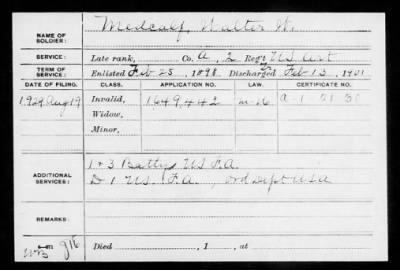 NAME OF SOLDIER: Medcalf, Walter W.
SERVICE: Late rank, Co. A, 2 Reg't US Art
TERM OF SERVICE: Enlisted Feb 25, 1898 Discharged Feb 13, 1901
DATE OF FILING. CLASS. APPLICATION NO. LAW. CERTIFICATE NO.
1929 Aug 19 Invalid, 1649442
Widow,
Minor,
1 & 3 Batty US F.A.
ADDITIONAL SERVICES: D 1 US. F.A., Ord Dept USA
REMARKS:
Died , 1 , at